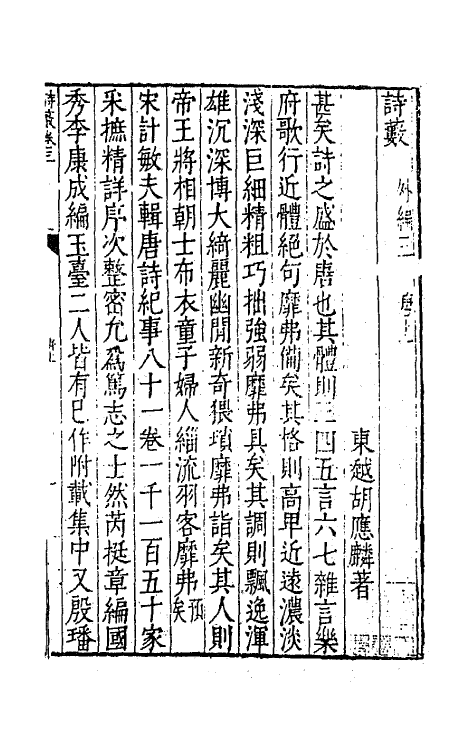 詩藪　外編三　唐上
東越胡應麟著
甚矣詩之盛於唐也其體則三四五言六七雜言樂
府歌行近體絕句靡弗備矣其格則高卑近遠濃淡
淺深巨細精粗巧拙強弱靡弗具矣其調則飄逸渾
雄沉深博大綺麗幽閒新奇猥瑣靡弗詣矣其人則
帝王將相朝士布衣童子婦人緇流羽客靡弗預矣
宋計敏夫輯唐詩紀事八十一卷一千一百五十家
采摭精詳序次整密允爲篤志之士然芮挺章編國
秀李康成編玉臺二人皆有已作附載集中又殷璠
詩藪卷三